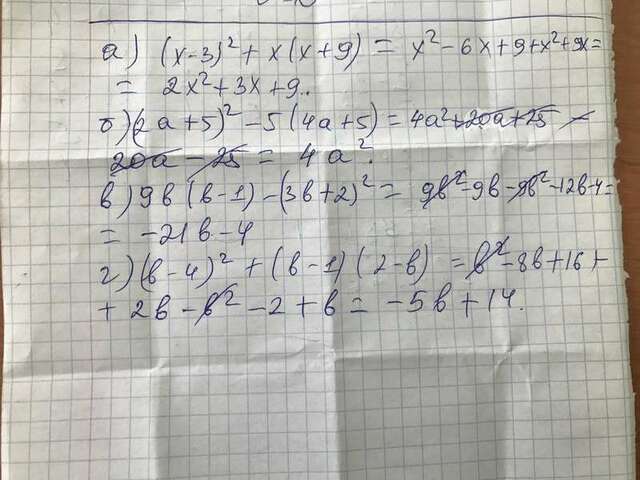 а) (x-3)² + x(x+9) = x² - 6x + 9 + x² + 9x =
= 2x² + 3x + 9..
б) (2a+5)² - 5(4a+5) = 4a² + 20a + 25 -
20a - 25 = 4a².
в) 9в(в-1) - (3в+2)² = 9в² - 9в - 9в² - 12в - 4 =
= -21в - 4
г) (в-4)² + (в-1)(2-в) = в² - 8в + 16 +
+ 2в - в² - 2 + в = -5в + 14.